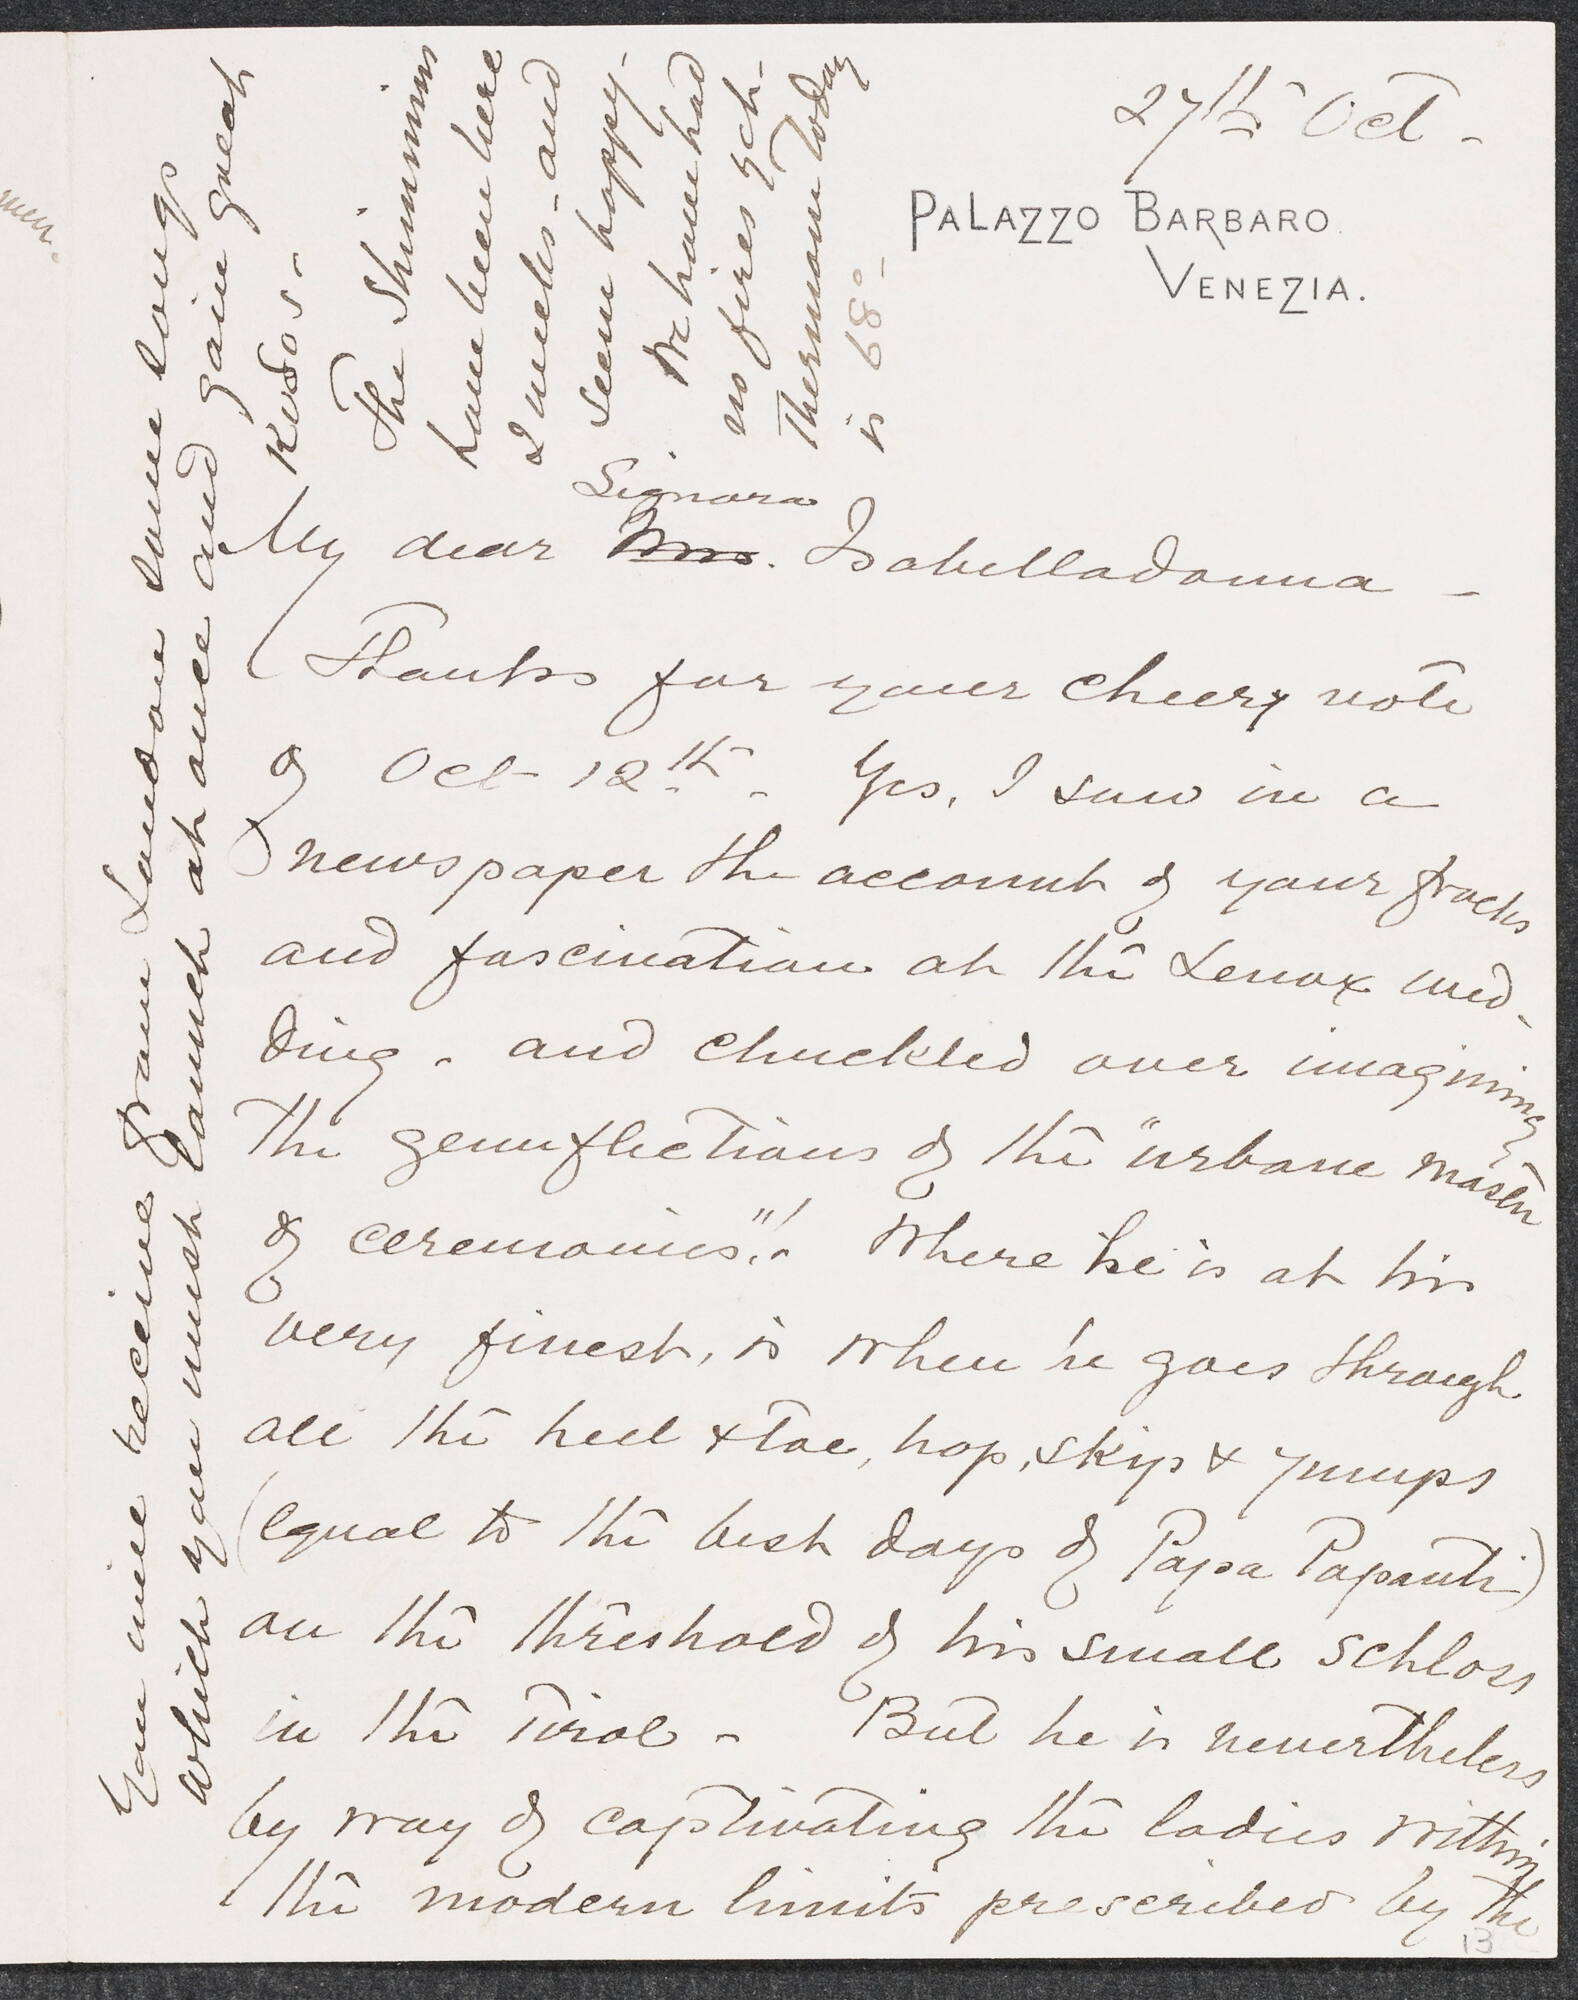 27th Oct -
PALAZZO BARBARO
VENEZIA.
Signora
My dear Mrs. Isabelladonna -
Thanks for your cheery note
of Oct 12th - Yes, I saw in a
newspaper the account of your frocks
and fascination at the Lenox wed-
ding - and chuckled over imagining
the genuflections of the "urbane master
of ceremonies"! Where he is at his
very finest, is when he goes through
all the heel & toe, hop, skip & jumps
(equal to the best days of Papa Papanti)
on the threshold of his small schloss
in the Tirol - But he is nevertheless
by way of captivating the ladies within
the modern limits prescribed by the
13
You will receive from London some songs
which you must launch at once and gain great
kudos -
The Shimmins
have been here
2 weeks - and
seem happy -
We have had
no fires yet -
Thermom today
is 68° -
men.